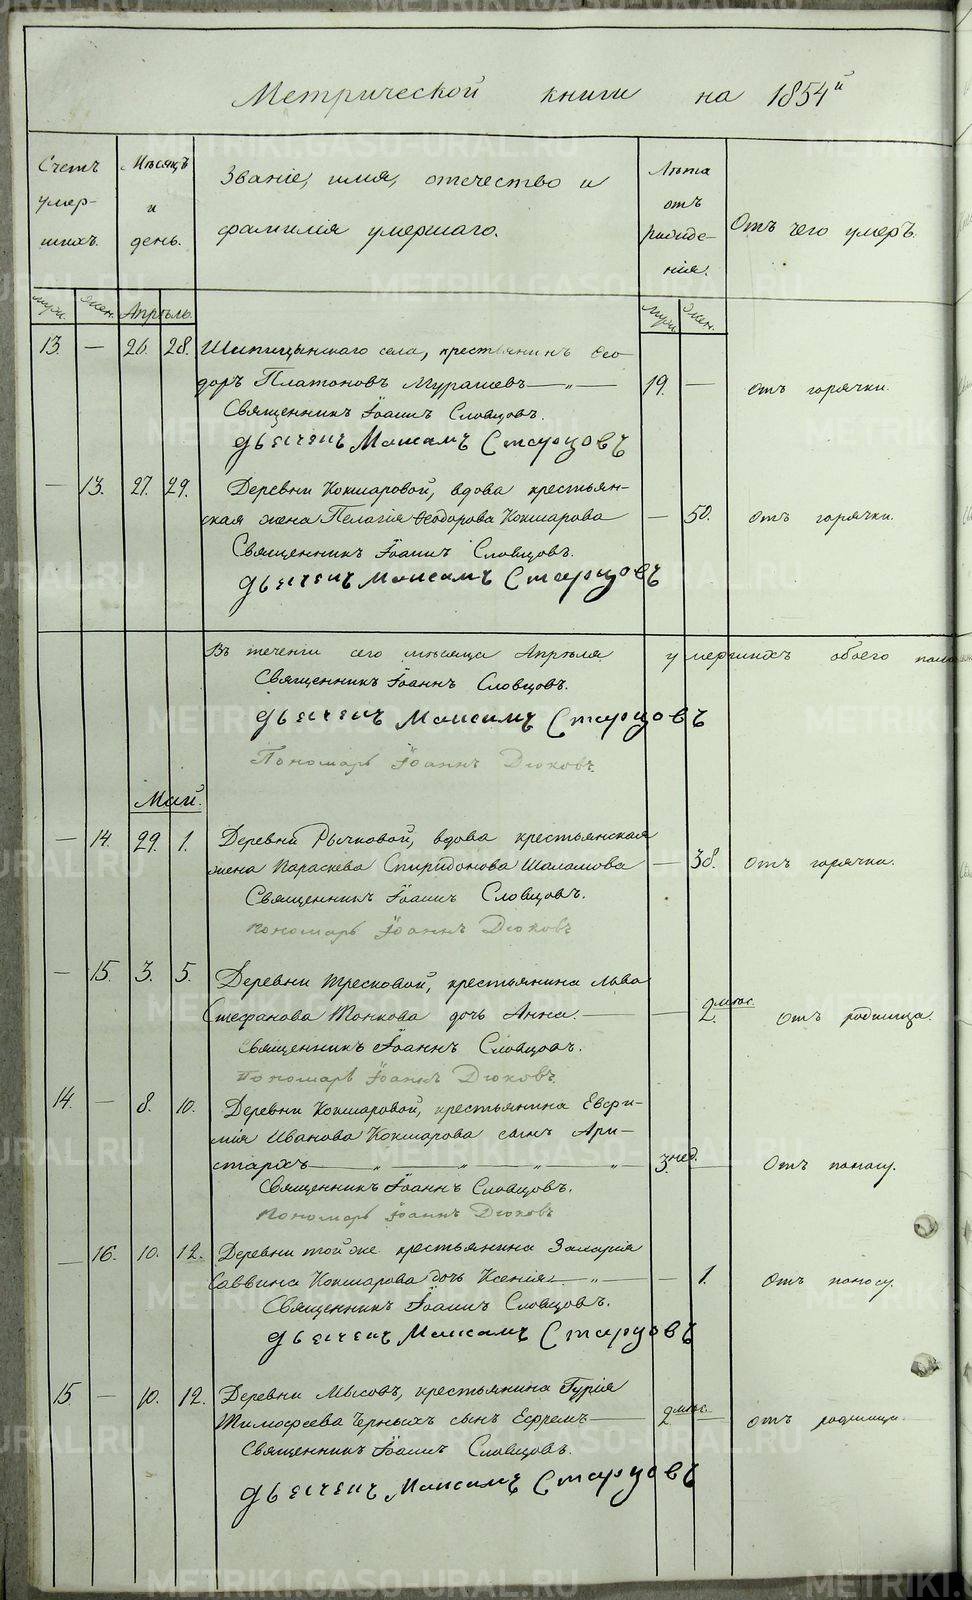 Метрической книги на 1854й
Счетъ умер- шихъ.
Мѣсяцъ и день.
Званіе, имя, отечество и фамилія умершаго.
Лѣта отъ рожде- нія.
Отъ чего умеръ.
муж. жен. Апрѣль. муж. жен.
13. — 26. 28. Шипицынскаго села, крестьянинъ Ѳео-
доръ Платоновъ Мурашевъ — „ — 19. — отъ горячки.
Священникъ Іоаннъ Словцовъ.
Дьячекъ Максимъ Старцовъ
— 13. 27. 29. Деревни Кокшаровой, вдова крестьян-
ская жена Пелагія Ѳеодорова Кокшарова — 50. отъ горячки.
Священникъ Іоаннъ Словцовъ.
Дьячекъ Максимъ Старцовъ
Въ теченіи сего мѣсяца Апрѣля умершихъ обоего пола
Священникъ Іоаннъ Словцовъ.
Дьячекъ Максимъ Старцовъ
Пономарь Іоаннъ Дюковъ.
Май.
— 14. 29. 1. Деревни Рычковой, вдова крестьянская
жена Параскева Спиридонова Шаламова — 38. отъ горячки.
Священникъ Іоаннъ Словцовъ.
Пономарь Іоаннъ Дюковъ
— 15. 3. 5. Деревни Тресковой, крестьянина Льва
Стефанова Тонкова дочь Анна. — — 2. мѣс. отъ родимца.
Священникъ Іоаннъ Словцовъ.
Пономарь Іоаннъ Дюковъ.
14. — 8. 10. Деревни Кокшаровой, крестьянина Евфи-
мія Иванова Кокшарова сынъ Ари-
стархъ — „ — „ — „ — „ 3. нед. — отъ поносу.
Священникъ Іоаннъ Словцовъ.
Пономарь Іоаннъ Дюковъ
— 16. 10. 12. Деревни той же крестьянина Захарія
Саввина Кокшарова дочь Ксенія. — „ — 1. отъ поносу.
Священникъ Іоаннъ Словцовъ.
Дьячекъ Максимъ Старцовъ
15. — 10. 12. Деревни Мысовъ, крестьянина Гурія
Тимофеева Черныхъ сынъ Ефремъ — 2 мѣс. — отъ родимца.
Священникъ Іоаннъ Словцовъ.
Дьячекъ Максимъ Старцовъ
METRIKI.GASO-URAL.RU